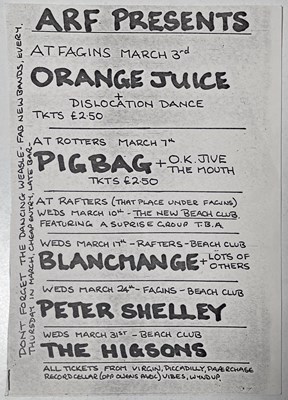 ARF PRESENTS
AT FAGINS MARCH 3rd
ORANGE JUICE
+
DISLOCATION DANCE
TKTS £2.50
AT ROTTERS MARCH 7th
PIGBAG + O.K. JIVE
THE MOUTH
TKTS £2.50
AT RAFTERS (THAT PLACE UNDER FAGINS)
WEDS MARCH 10th - THE NEW BEACH CLUB.
FEATURING A SUPRISE GROUP T.B.A
WEDS MARCH 17th - RAFTERS - BEACH CLUB
BLANCMANGE + LOTS OF
OTHERS
WEDS MARCH 24th - FAGINS - BEACH CLUB
PETER SHELLEY
WEDS MARCH 31st - BEACH CLUB
THE HIGSONS
ALL TICKETS FROM VIRGIN, PICCADILLY, PAPERCHASE
RECORD CELLAR (OPP OWENS PARK) VIBES, WYND UP.
DON'T FORGET THE DANCING WEASLE - FAB NEW BANDS, EVERY
THURSDAY IN MARCH, CHEAP ENTRY, LATE BAR -